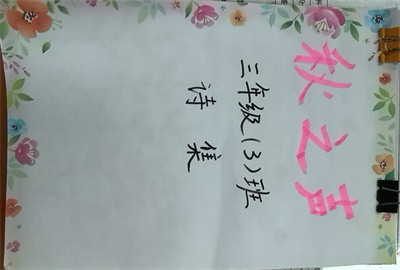 秋之声
三年级(3)班
诗集